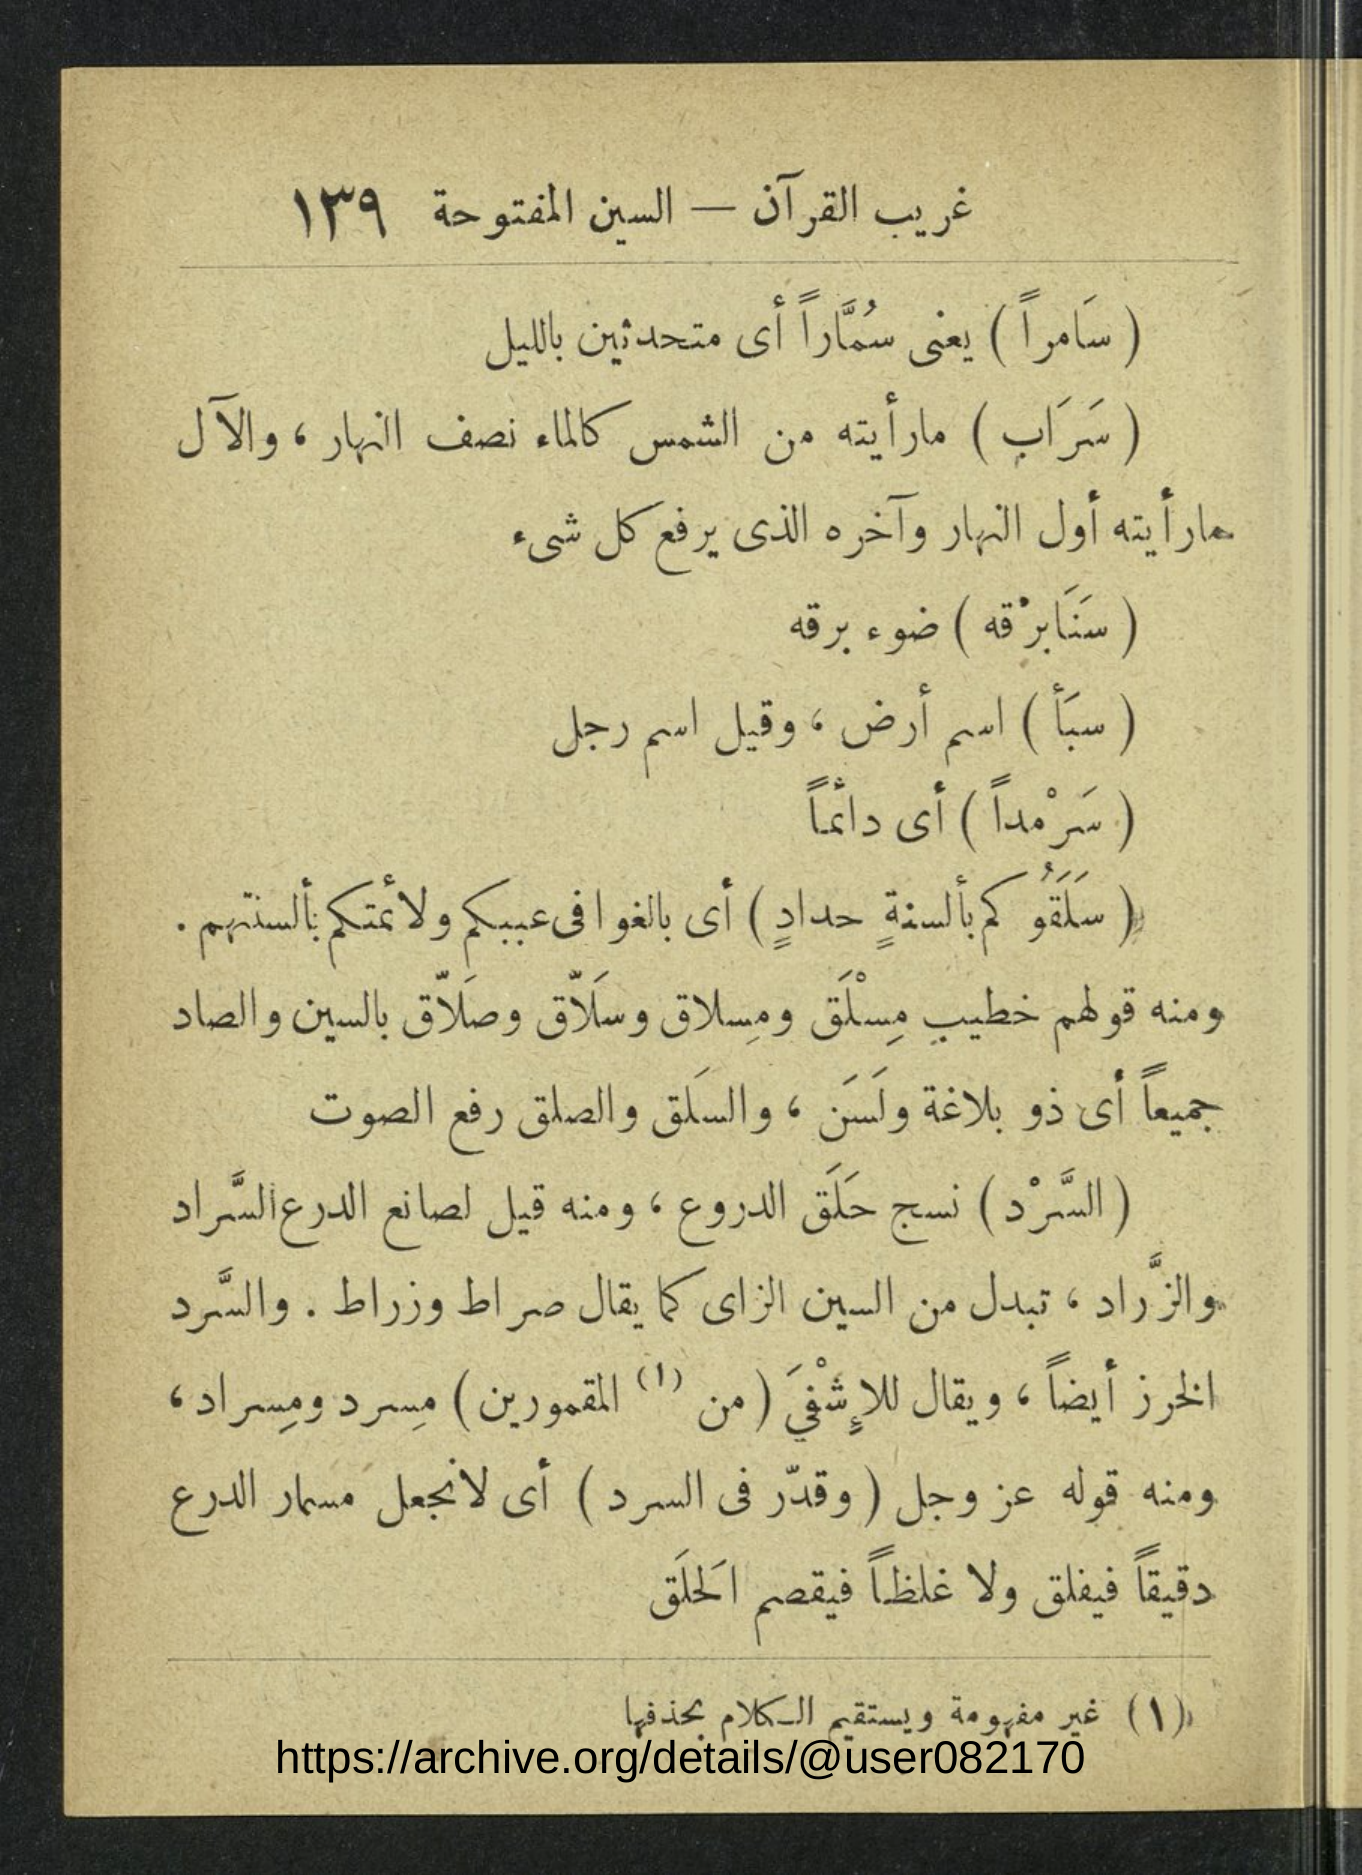 غريب القرآن — السين المفتوحة ١٣٩
( سَامراً ) يعنى سُمَّاراً أى متحدثين بالليل
( سَرَاب ) مارأيته من الشمس كالماء نصف النهار ، والآل
مارأيته أول النهار وآخره الذى يرفع كل شىء
( سَنَابرْقه ) ضوء برقه
( سبَأ ) اسم أرض ، وقيل اسم رجل
( سَرْمداً ) أى دائماً
( سَلَقَُوكم بألسنةٍ حدادٍ ) أى بالغوا فى عيبكم ولائمتكم بألسنتهم .
ومنه قولهم خطيب مِسْلَق ومِسلاق وسَلاّق وصَلاّق بالسين والصاد
جميعاً أى ذو بلاغة ولَسَن ، والسَلق والصلق رفع الصوت
( السَّرْد ) نسج حَلَق الدروع ، ومنه قيل لصانع الدرع السَّراد
والزَّراد ، تبدل من السين الزاى كما يقال صراط وزراط . والسَّرد
الخرز أيضاً ، ويقال للإشْفِيَ ( من (١) المقمورين ) مِسرد ومِسراد ،
ومنه قوله عز وجل ( وقدّر فى السرد ) أى لانجعل مسمار الدرع
دقيقاً فيفلق ولا غلظاً فيقصم الَحلَق
(١) غير مفهومة ويستقيم الـكلام بحذفها
https://archive.org/details/@user082170